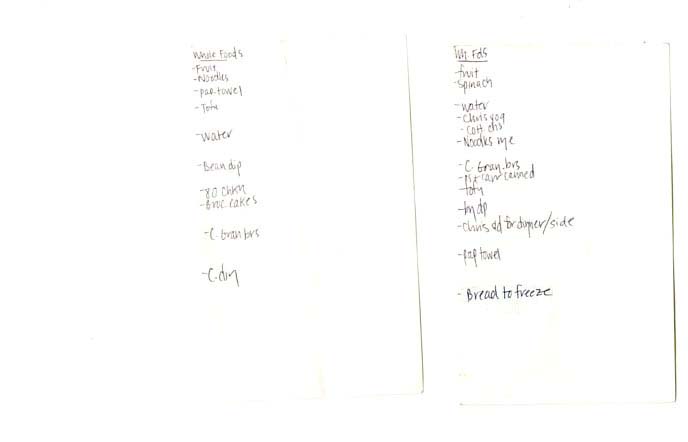 Whole Foods
-Fruit
-Noodles
-pap.towel
-Tofu
-Water
-Bean dip
-Broc.cakes
-C. Gran brs
Wh. Fds
-fruit
-Spinach
-water
-Chris yog
-Cott chs
-Noodles me
-C. Gran.brs
-tofu
-bn dp
-Chris for dinner/side
-pap towel
- Bread to freeze